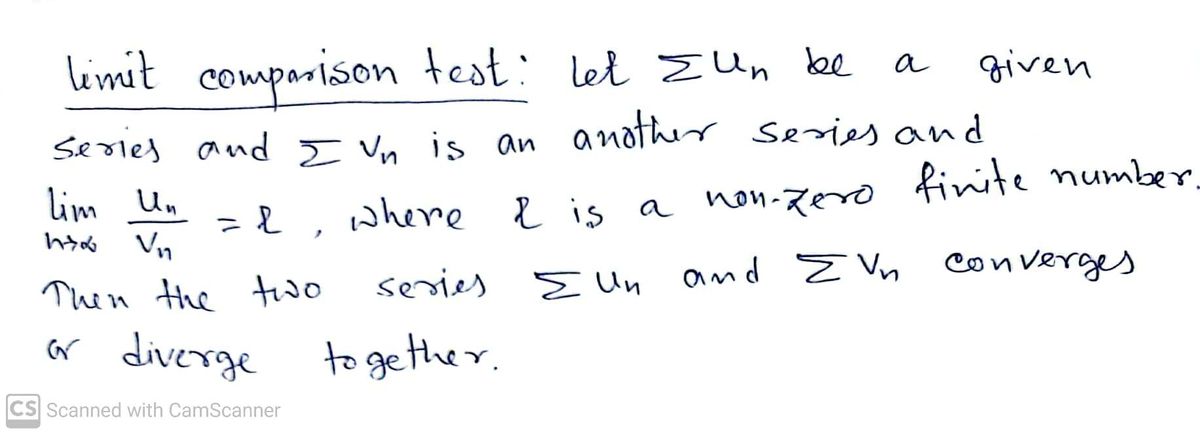 limit comparison test: let Σ Un be a given
series and Σ Vn is an another series and
lim n→∞ Un/Vn = l, where l is a non-zero finite number.
Then the two series Σ Un and Σ Vn converges
or diverge together.
CS Scanned with CamScanner